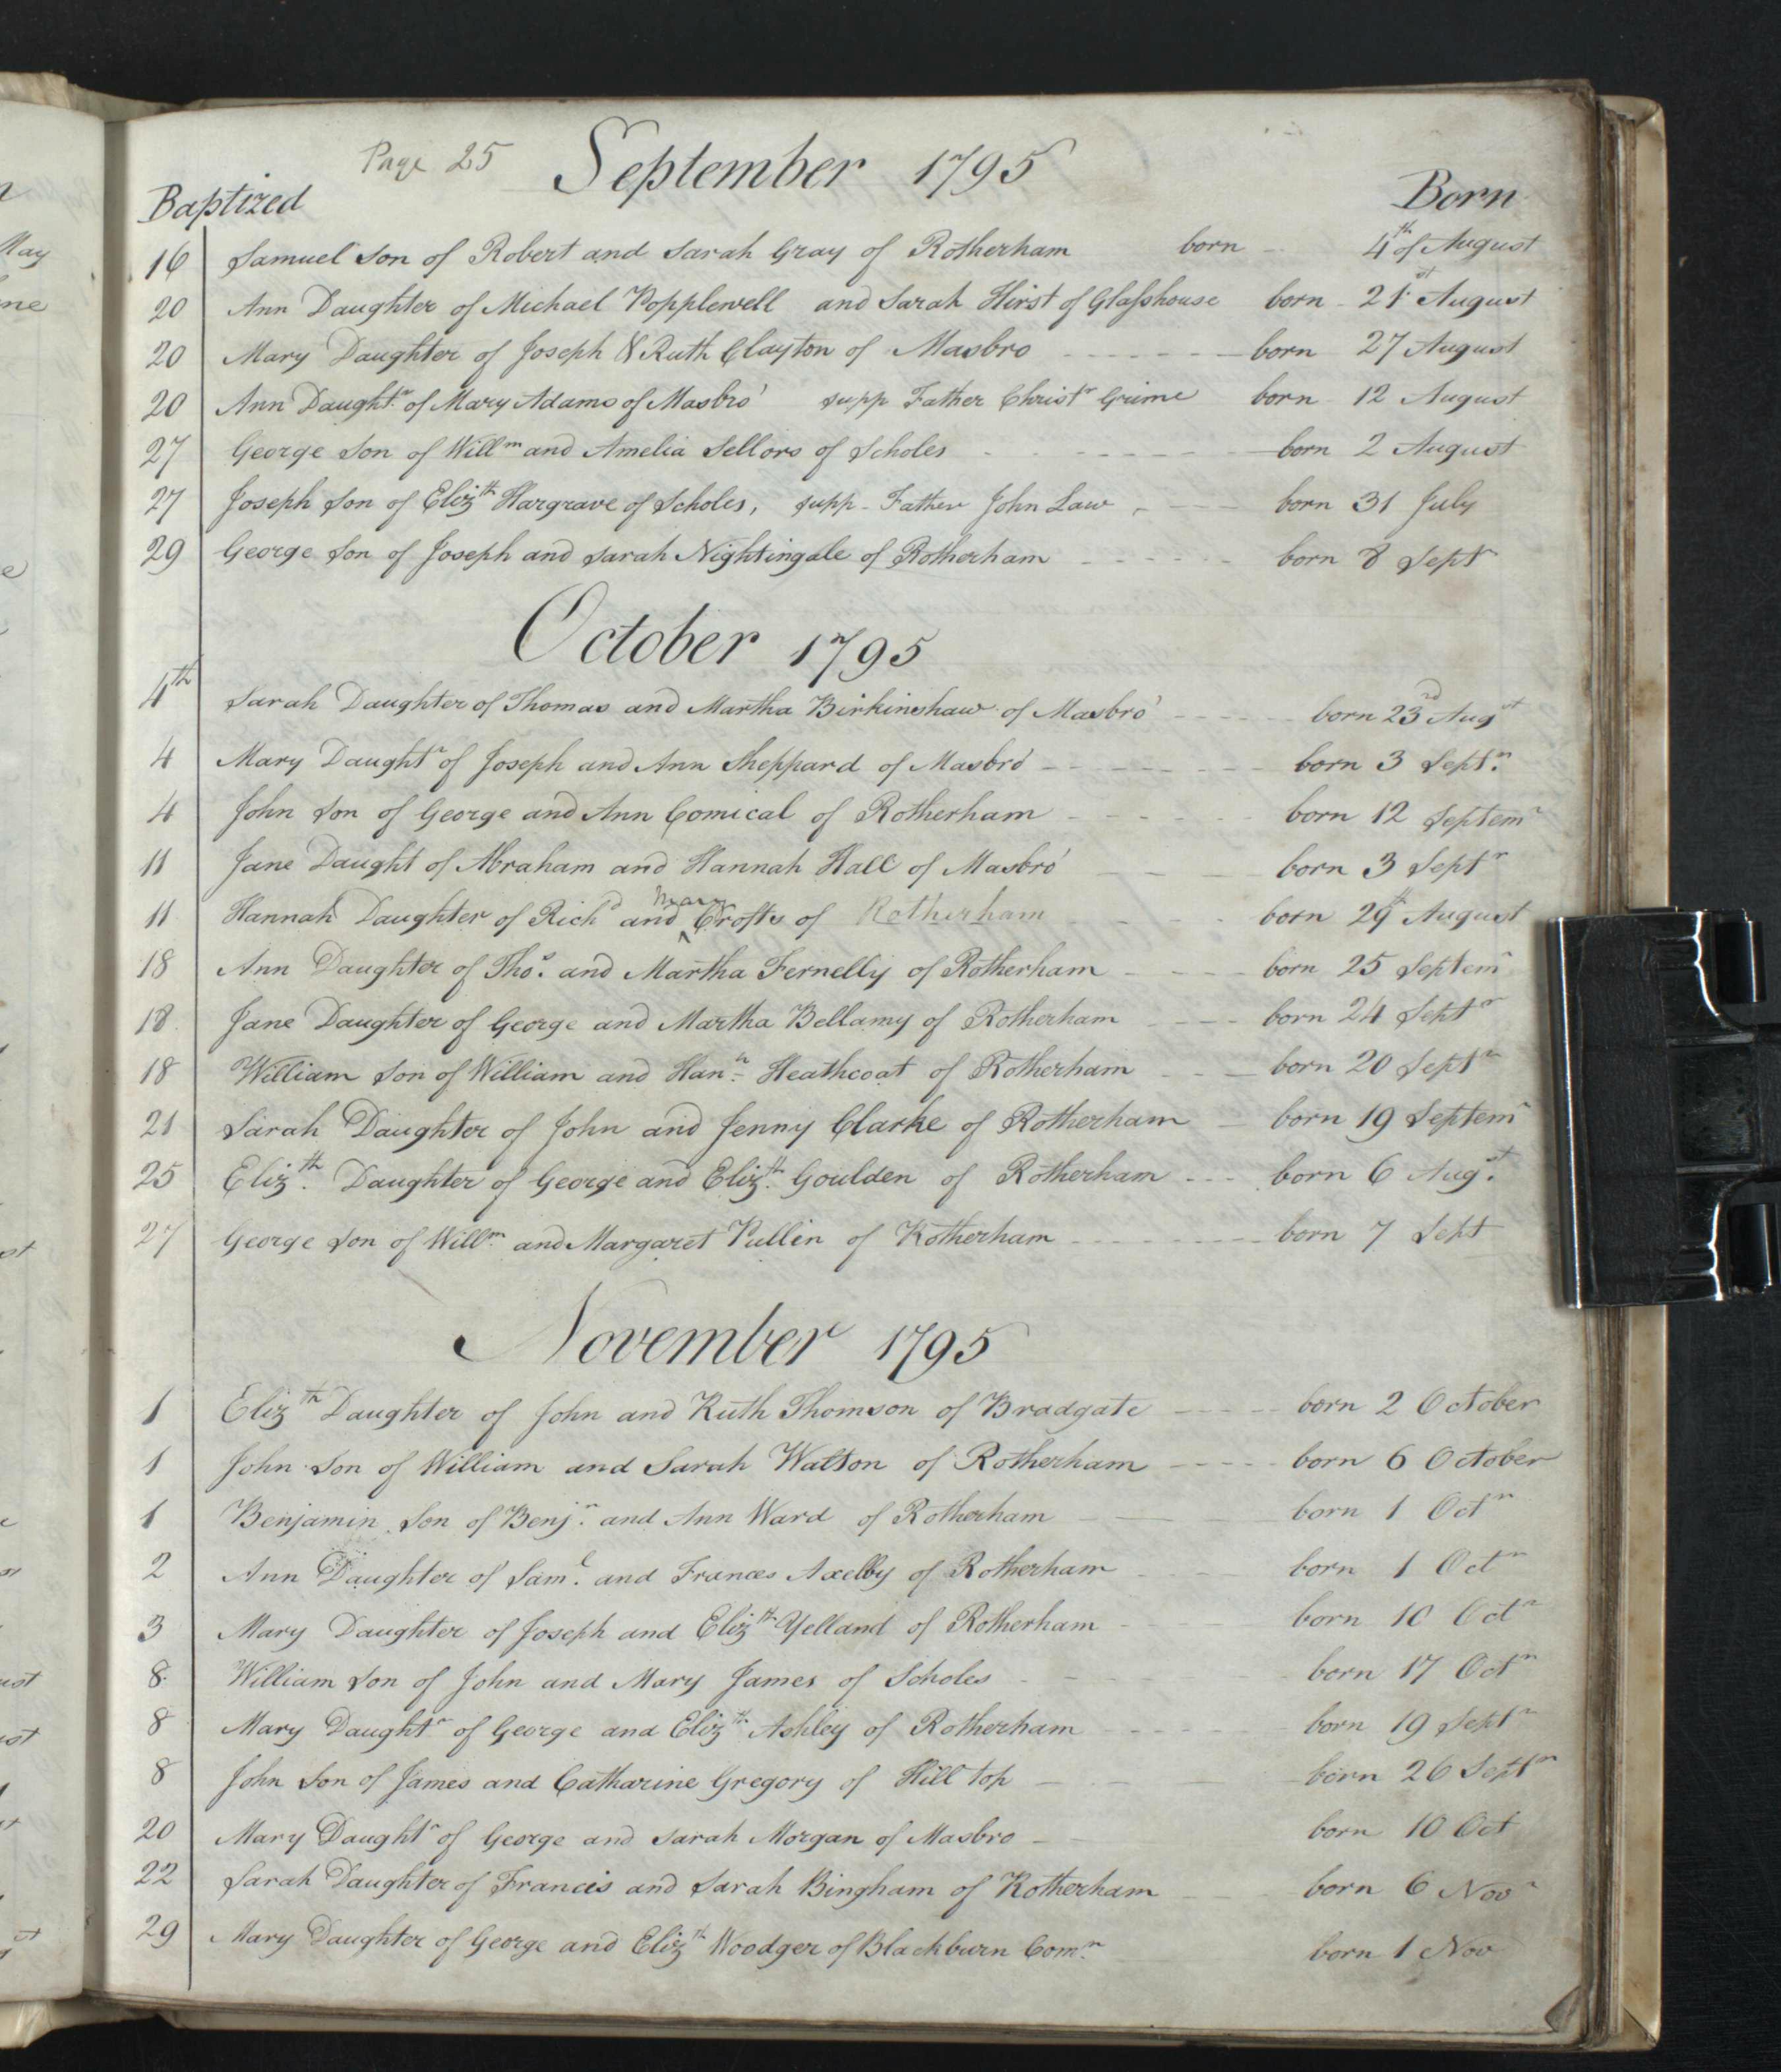 Page 25
September 1795
Baptized Born
16 Samuel Son of Robert and Sarah Gray of Rotherham born 4th of August
20 Ann Daughter of Michael Popplewell and Sarah Hirst of Glasshouse born 21st August
20 Mary Daughter of Joseph & Ruth Clayton of Masbro born 27 August
20 Ann Daughtr of Mary Adams of Masbro' supp Father Christr Grime born 12 August
27 George Son of Willm and Amelia Sellors of Scholes born 2 August
27 Joseph Son of Elizth Hargrave of Scholes, supp - Father John Law born 31 July
29 George Son of Joseph and Sarah Nightingale of Rotherham born 8 Septr
October 1795
4th Sarah Daughter of Thomas and Martha Birkinshaw of Masbro' born 23rd Augst
4 Mary Daughtr of Joseph and Ann Sheppard of Masbro' born 3 Septr
4 John Son of George and Ann Comical of Rotherham born 12 Septemr
11 Jane Daught of Abraham and Hannah Hall of Masbro' born 3 Septr
11 Hannah Daughter of Richd and Mary Crofts of Rotherham born 29th August
18 Ann Daughter of Thos. and Martha Fernelly of Rotherham born 25 Septemr
18 Jane Daughter of George and Martha Bellamy of Rotherham born 24 Septr
18 William Son of William and Hanh Heathcoat of Rotherham born 20 Septr
21 Sarah Daughter of John and Jenny Clarke of Rotherham born 19 Septemr
25 Elizth. Daughter of George and Elizth. Goulden of Rotherham born 6 Augst.
27 George Son of Willm. and Margaret Pullin of Rotherham born 7 Sept
November 1795
1 Elizth Daughter of John and Ruth Thomson of Bradgate born 2 October
1 John Son of William and Sarah Walton of Rotherham born 6 October
1 Benjamin Son of Benjn. and Ann Ward of Rotherham born 1 Octr
2 Ann Daughter of Saml. and Frances Axelby of Rotherham born 1 Octr
3 Mary Daughter of Joseph and Elizth Yelland of Rotherham born 10 Octr
8 William Son of John and Mary James of Scholes born 17 Octr
8 Mary Daughtr of George and Elizth Ashley of Rotherham born 19 Septr
8 John Son of James and Catharine Gregory of Hill top born 26 Septr
20 Mary Daughtr of George and Sarah Morgan of Masbro born 10 Oct
22 Sarah Daughter of Francis and Sarah Bingham of Rotherham born 6 Novr
29 Mary Daughter of George and Elizth Woodger of Blackburn Comn born 1 Nov